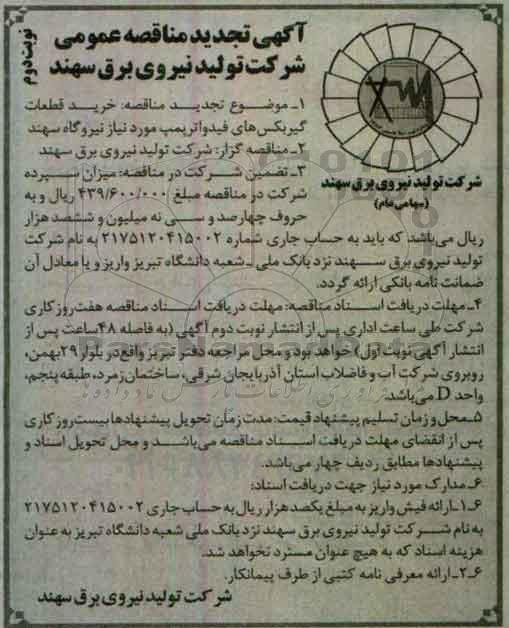 نوبت دوم
آگهی تجدید مناقصه عمومی
شرکت تولید نیروی برق سهند
شرکت تولید نیروی برق سهند
(سهامی عام)
۱ـ موضوع تجدید مناقصه: خرید قطعات
گیربکس‌های فیدواترپمپ مورد نیاز نیروگاه سهند
۲ـ مناقصه گزار: شرکت تولید نیروی برق سهند
۳ـ تضمین شرکت در مناقصه: میزان سپرده
شرکت در مناقصه مبلغ ۴۳۹/۶۰۰/۰۰۰ ریال و به
حروف چهارصد و سی نه میلیون و ششصد هزار
ریال می‌باشد که باید به حساب جاری شماره ۲۱۷۵۱۲۰۴۱۵۰۰۲ به نام شرکت
تولید نیروی برق سهند نزد بانک ملی ـ شعبه دانشگاه تبریز واریز و یا معادل آن
ضمانت نامه بانکی ارائه گردد.
۴ـ مهلت دریافت اسناد مناقصه: مهلت دریافت اسناد مناقصه هفت روز کاری
شرکت طی ساعت اداری پس از انتشار نوبت دوم آگهی (به فاصله ۴۸ ساعت پس از
انتشار آگهی نوبت اول) خواهد بود و محل مراجعه دفتر تبریز واقع در بلوار ۲۹ بهمن،
روبروی شرکت آب و فاضلاب استان آذربایجان شرقی، ساختمان زمرد، طبقه پنجم،
واحد D می‌باشد.
۵ـ محل و زمان تسلیم پیشنهاد قیمت: مدت زمان تحویل پیشنهادها بیست روز کاری
پس از انقضای مهلت دریافت اسناد مناقصه می‌باشد و محل تحویل اسناد و
پیشنهادها مطابق ردیف چهار می‌باشد.
۶ـ مدارک مورد نیاز جهت دریافت اسناد:
۶ـ۱ـ ارائه فیش واریز به مبلغ یکصد هزار ریال به حساب جاری ۲۱۷۵۱۲۰۴۱۵۰۰۲
به نام شرکت تولید نیروی برق سهند نزد بانک ملی شعبه دانشگاه تبریز به عنوان
هزینه اسناد که به هیچ عنوان مسترد نخواهد شد.
۶ـ۲ـ ارائه معرفی نامه کتبی از طرف پیمانکار.
شرکت تولید نیروی برق سهند